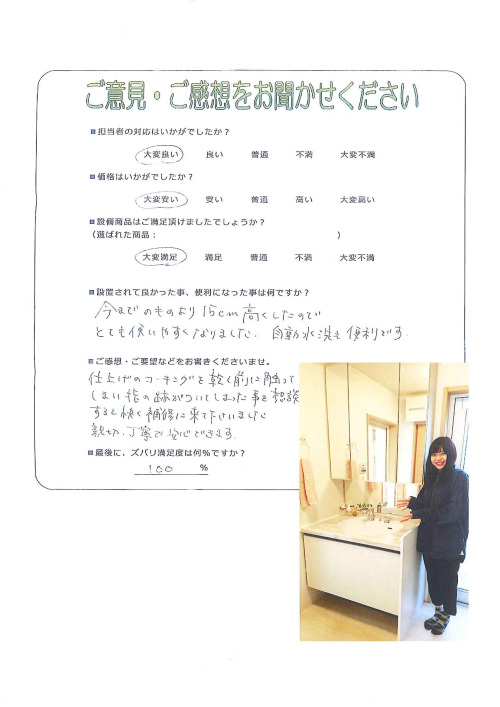 ご意見・ご感想をお聞かせください
■担当者の対応はいかがでしたか？
大変良い 良い 普通 不満 大変不満
■価格はいかがでしたか？
大変安い 安い 普通 高い 大変高い
■設備商品はご満足頂けましたでしょうか？
（選ばれた商品： ）
大変満足 満足 普通 不満 大変不満
■設置されて良かった事、便利になった事は何ですか？
今までのものより15cm高くしたので
とても使いやすくなりました. 自動水洗も便利です.
■ご感想・ご要望などをお書きくださいませ。
仕上げのコーキングを乾く前に触って
しまい指の跡がついてしまった事を相談
すると快く補修に来て下さいました
親切、丁寧で安心できます.
■最後に、ズバリ満足度は何%ですか？
100 %